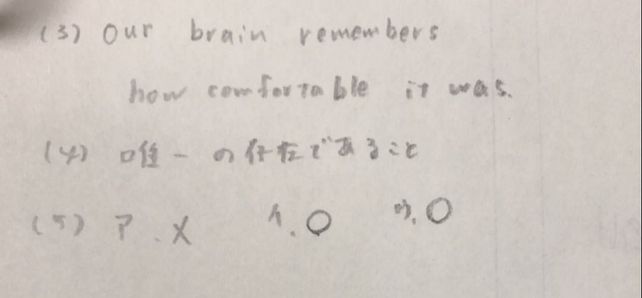 (3) Our brain remembers
how comfortable it was.
(4) 唯一の存在であること
(5) ア.× イ.○ ウ.○